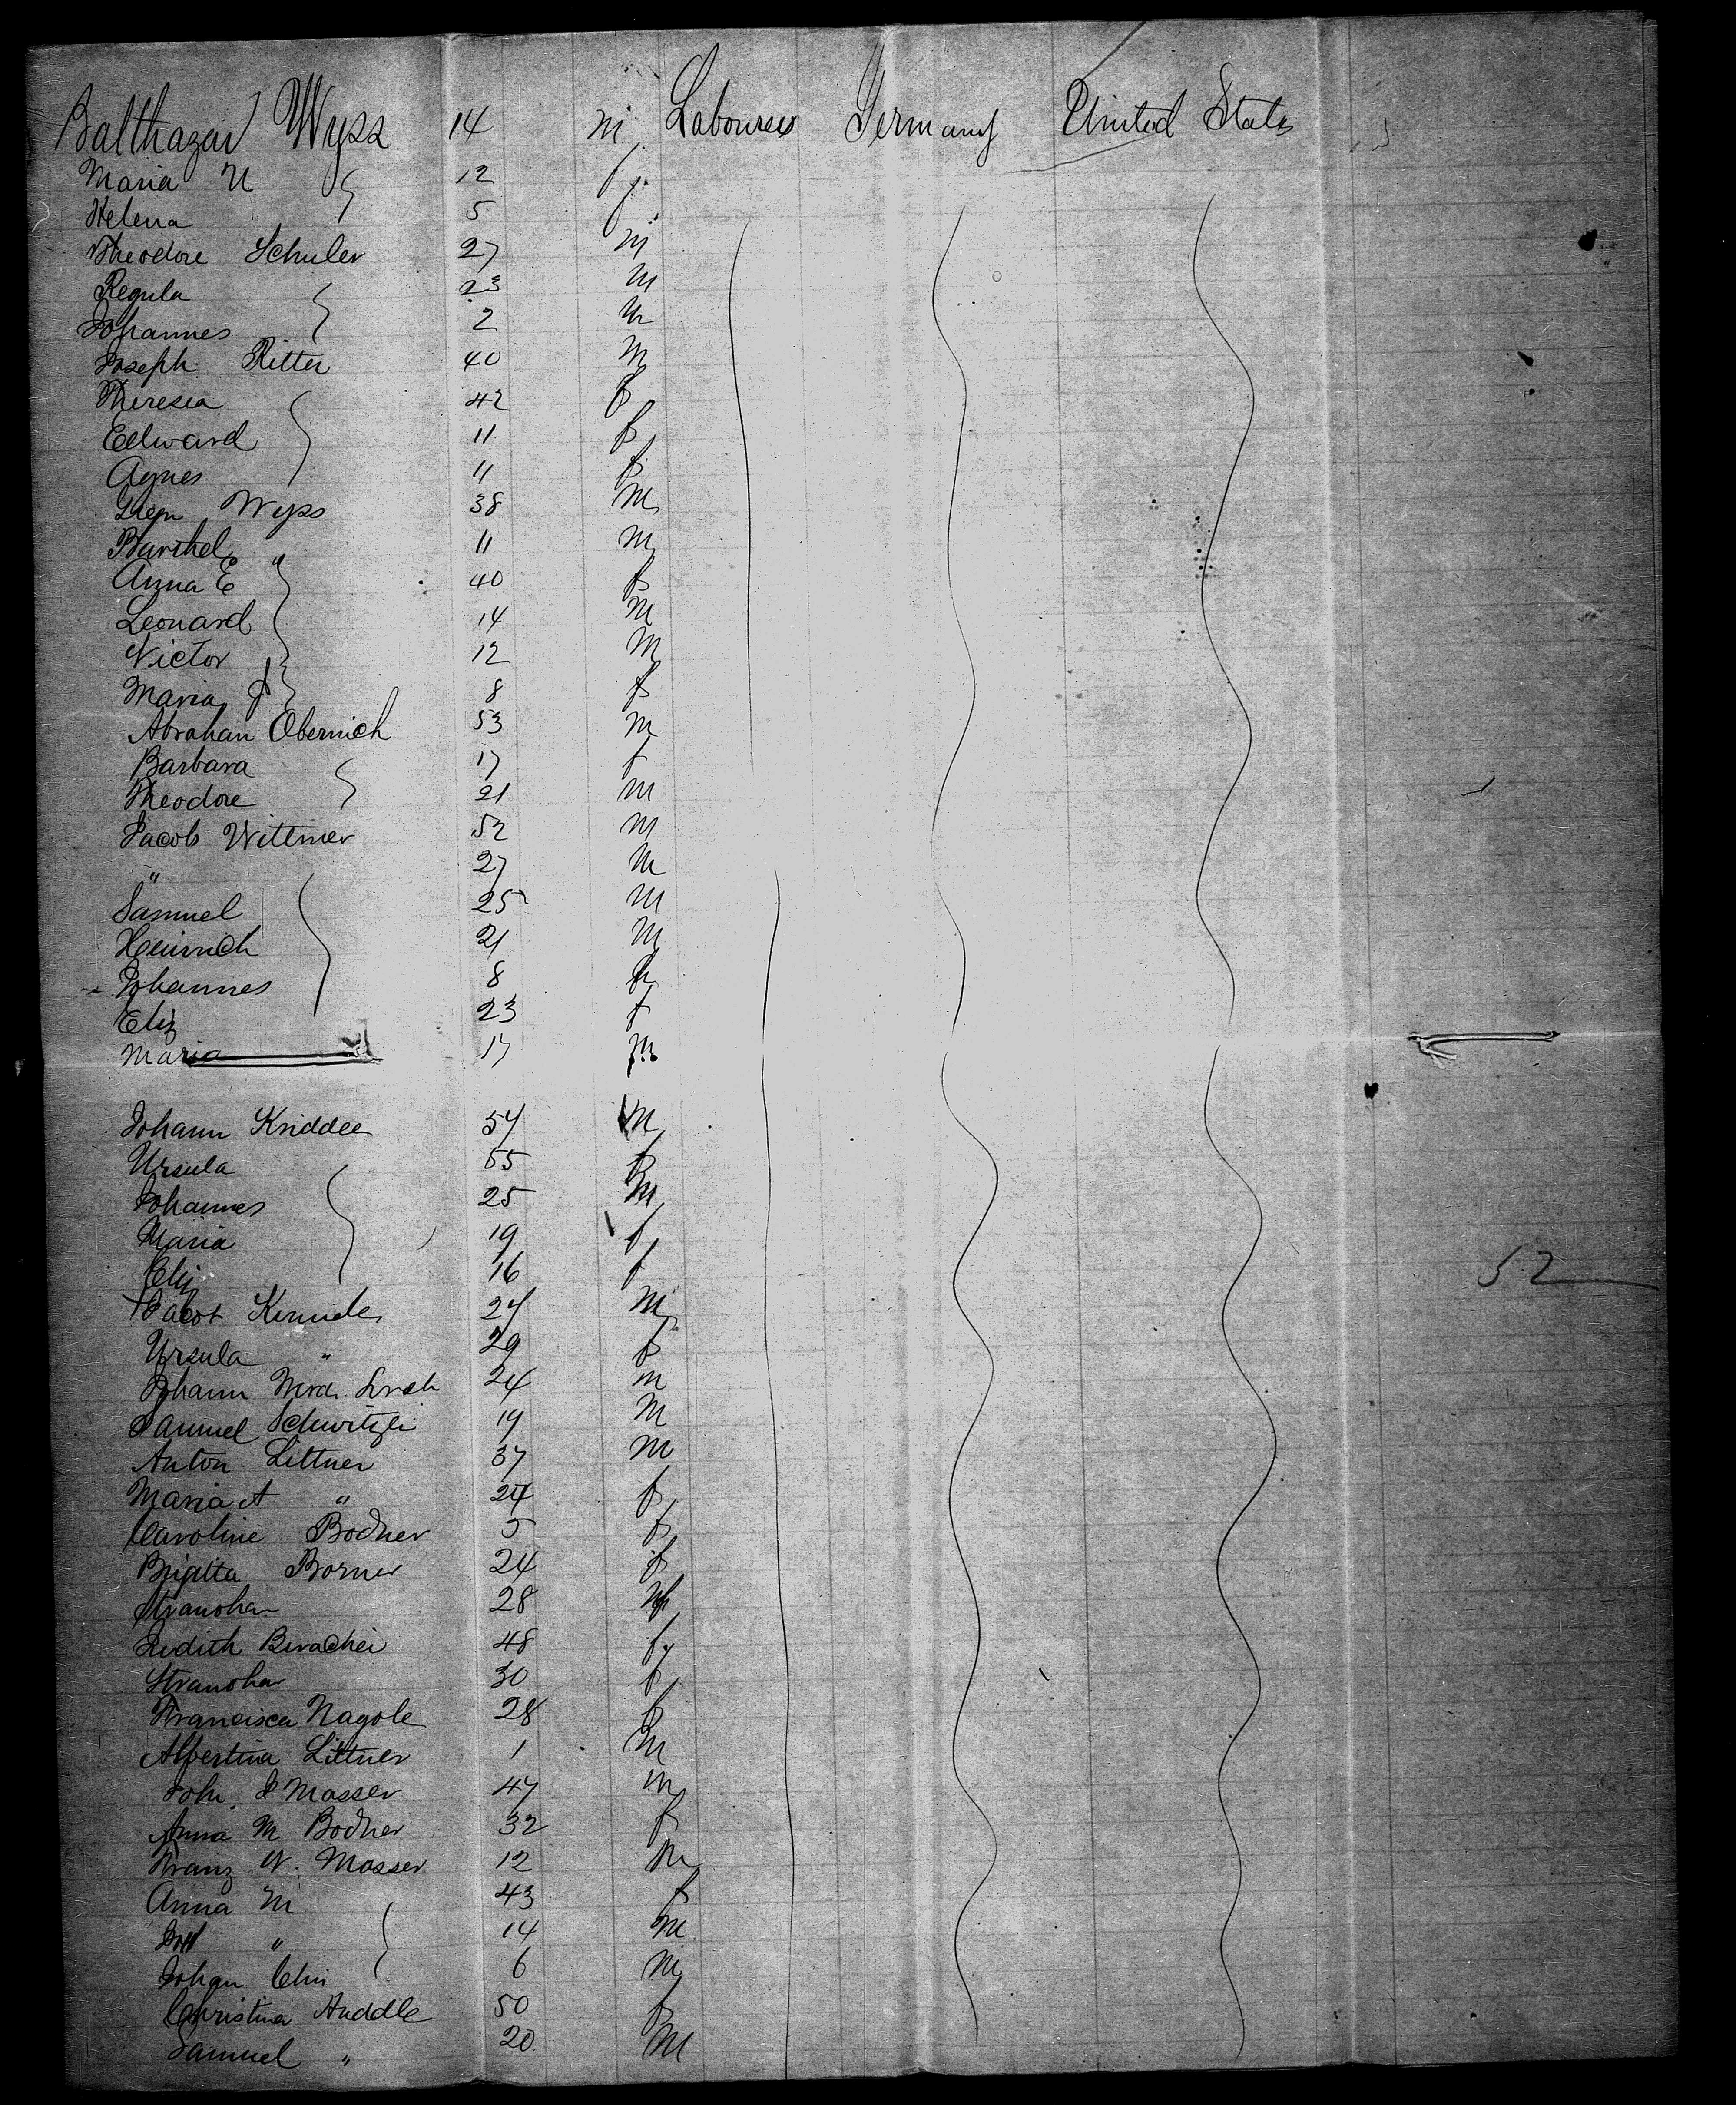 Balthazar Wyss 14 m Labourer Germany United States
Maria U 12 f
Helena 5 f
Theodore Schuler 27 m
Regula 23 m
Johannes 2 m
Joseph Ritter 40 m
Theresia 42 f
Edward 11 f
Agnes 11 f
Wyss 38 m
Barthel " 11 m
Anna E 40 f
Leonard 14 m
Victor 12 m
Maria 8 f
Abraham Obernich 53 m
Barbara 17 f
Theodore 21 m
Jacob Wittmer 52 m
" 27 m
Samuel 25 m
Heinrich 21 m
Johannes 8 m
Eliz 23 f
Maria 17 m
Johann Kriddee 54 m
Ursula 55 f
Johannes 25 m
Maria 19 f
Eliz 16 f
52
Jacob 24 m
Ursula " 29 f
Johann 24 m
Samuel Schwitzli 19 m
Anton Littner 37 m
Maria A " 24 f
Caroline Bodner 5 f
Brigitta Borner 24 f
28
Judith 48 f
30 f
Francisca Nagole 28 f
Albertina Littner 1 m
Joh. J Mosser 47 m
Anna M Bodner 32 f
Franz N. Mosser 12 m
Anna M 43 f
" 14 m
Johan 6 m
Christina Auddle 50 f
Samuel " 20 m